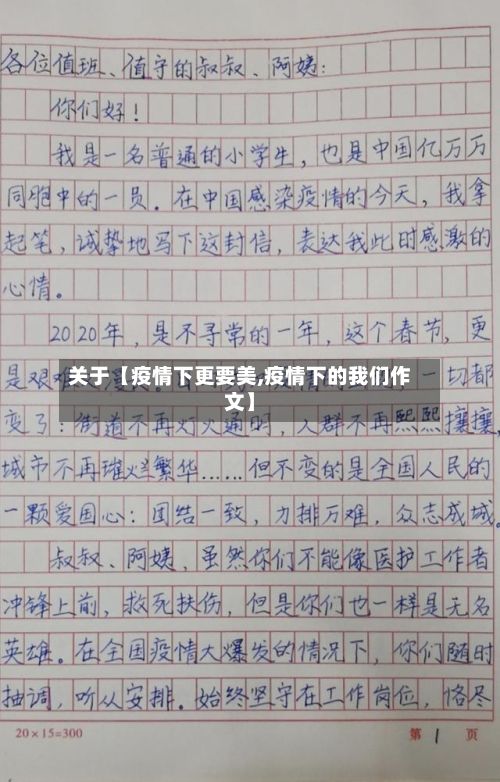 各位值班、值守的叔叔、阿姨:
你们好!
我是一名普通的小学生,也是中国亿万万
同胞中的一员。在中国感染疫情的今天,我拿
起笔,诚挚地写下这封信,表达我此时感激的
心情。
2020年,是不寻常的一年,这个春节,更
是艰难
关于【疫情下更要美,疫情下的我们作
文】
,一切都
变了:街道不再灯火通明,人群不再熙熙攘攘,
城市不再璀烂繁华……但不变的是全国人民的
一颗爱国心:团结一致,力排万难,众志成城。
叔叔、阿姨,虽然你们不能像医护工作者
冲锋上前,救死扶伤,但是你们也一样是无名
英雄。在全国疫情大爆发的情况下,你们随时
抽调,听从安排。始终坚守在工作岗位,恪尽
20×15=300 第 1 页